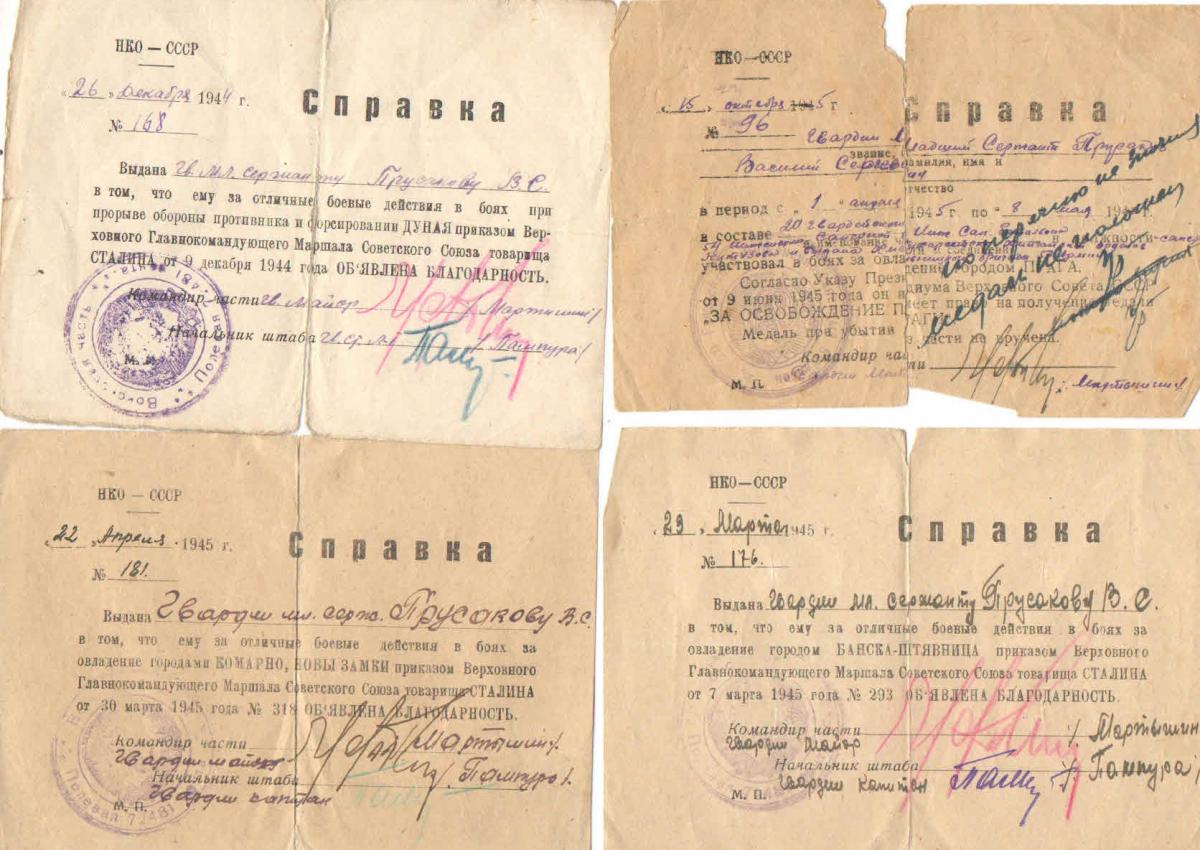 НКО — СССР
„26 „ Декабря 1944 г.
Справка
№ 168
Выдана Гв. мл. сержанту Прусакову В.С.
в том, что ему за отличные боевые действия в боях при
прорыве обороны противника и форсировании ДУНАЯ приказом Вер-
ховного Главнокомандующего Маршала Советского Союза товарища
СТАЛИНА от 9 декабря 1944 года ОБ'ЯВЛЕНА БЛАГОДАРНОСТЬ.
Командир части гв. майор /Мартышин/
Начальник штаба /Пампура/
М. П.
НКО — СССР
„15„ октября 1945 г
Справка
№ 96
Гвардии Младший Сержант
звание, фамилия, имя и
Василий
отчество
в период с „1 „ апреля 1945 г. по „8 мая
в составе 20 Гвардейской
участвовал в боях за овладение городом ПРАГА.
Согласно Указу Президиума Верховного Совета СССР
от 9 июня 1945 года он имеет право на получение медали
„ЗА ОСВОБОЖДЕНИЕ ПРАГИ
Медаль при убытии из части не вручена.
Командир части
М. П. /Мартышин/
НКО — СССР
„22„ Апреля 1945 г.
Справка
№ 181.
Выдана Гвардии мл. серж. Прусакову В.С.
в том, что ему за отличные боевые действия в боях за
овладение городами КОМАРНО, НОВЫ ЗАМКИ приказом Верховного
Главнокомандующего Маршала Советского Союза товарища СТАЛИНА
от 30 марта 1945 года № 318 ОБ'ЯВЛЕНА БЛАГОДАРНОСТЬ.
Командир части /Мартышин/.
Гвардии майор
Начальник штаба /Пампура/.
М. П. Гвардии капитан
Полевая 7481
НКО — СССР
„29„ Марта 1945 г.
Справка
№ 176.
Выдана Гвардии мл. сержанту Прусакову В. С.
в том, что ему за отличные боевые действия в боях за
овладение городом БАНСКА-ШТЯВНИЦА приказом Верховного
Главнокомандующего Маршала Советского Союза товарища СТАЛИНА
от 7 марта 1945 года № 293 ОБ'ЯВЛЕНА БЛАГОДАРНОСТЬ.
Командир части / Мартышин
Гвардии майор
Начальник штаба / Пампура/
М. П. Гвардии капитан